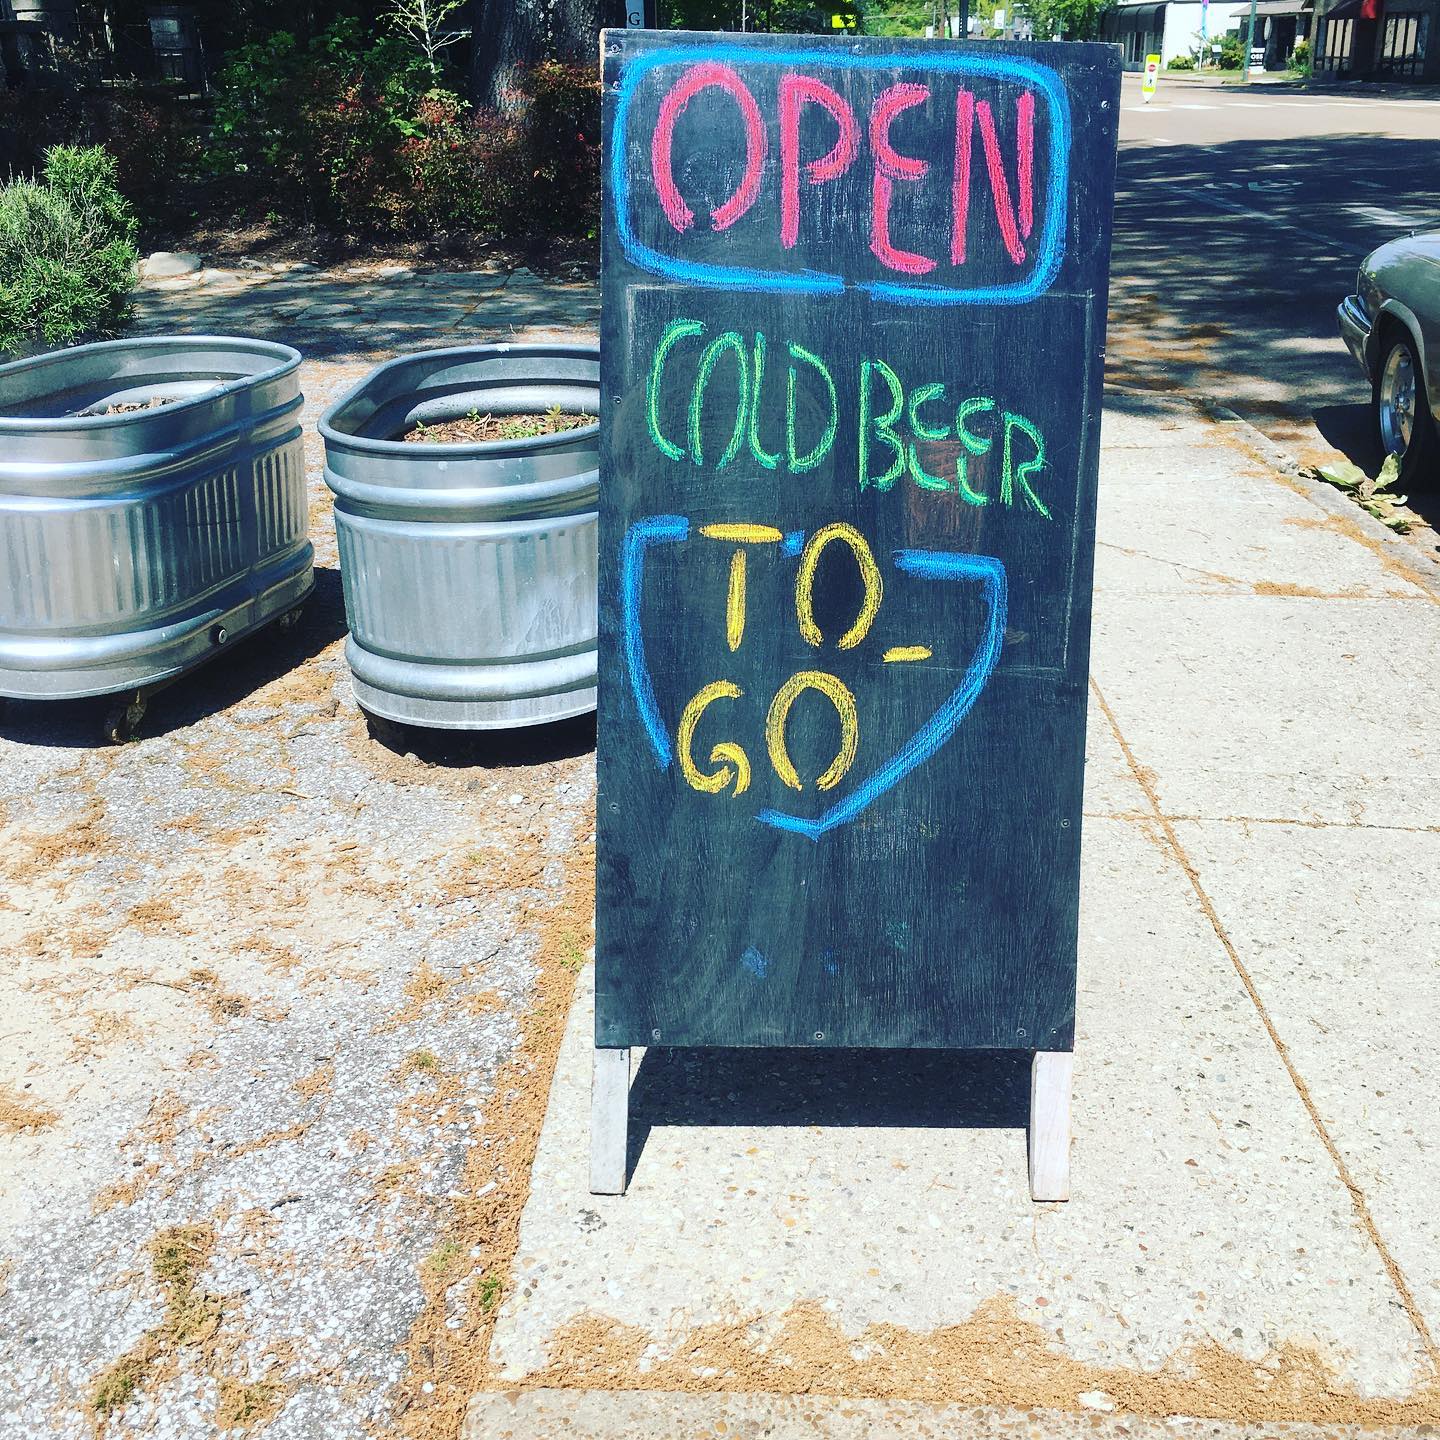 OPEN
COLD BEER
TO-
GO
G